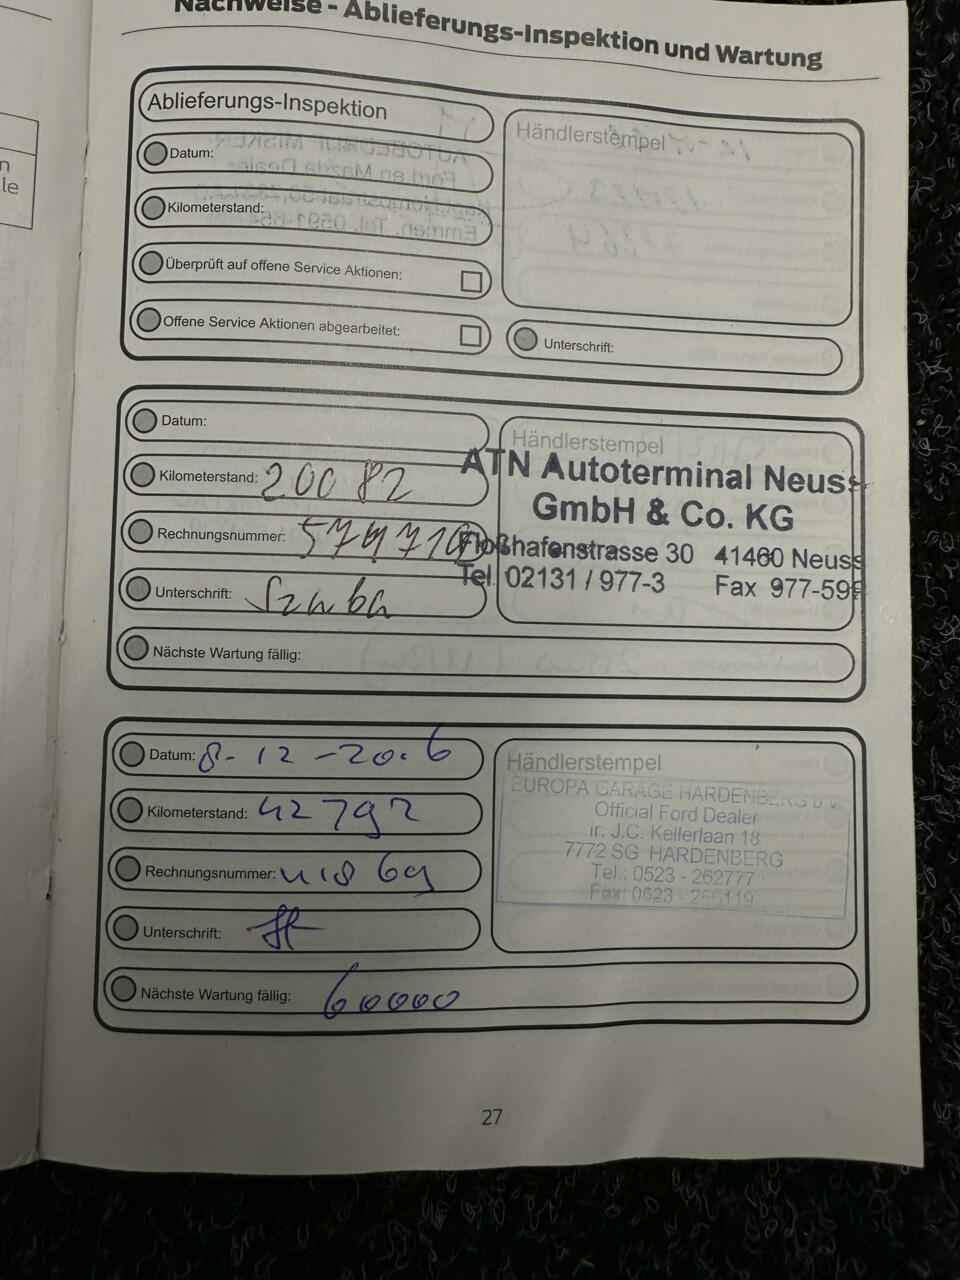 Nachweise - Ablieferungs-Inspektion und Wartung
Ablieferungs-Inspektion
Datum:
Kilometerstand:
Überprüft auf offene Service Aktionen:
Offene Service Aktionen abgearbeitet:
Händlerstempel
Unterschrift:
Datum:
Kilometerstand: 20082
Rechnungsnummer:
Unterschrift: Szuba
Nächste Wartung fällig:
Händlerstempel
ATN Autoterminal Neuss
GmbH & Co. KG
Floßhafenstrasse 30 41460 Neuss
Tel. 02131 / 977-3 Fax 977-599
Datum: 8-12-20.6
Kilometerstand: 42792
Rechnungsnummer:
Unterschrift:
Nächste Wartung fällig: 60000
Händlerstempel
EUROPA GARAGE HARDENBERG B.V.
Official Ford Dealer
ir. J.C. Kellerlaan 18
7772 SG HARDENBERG
Tel.: 0523 - 262777
27